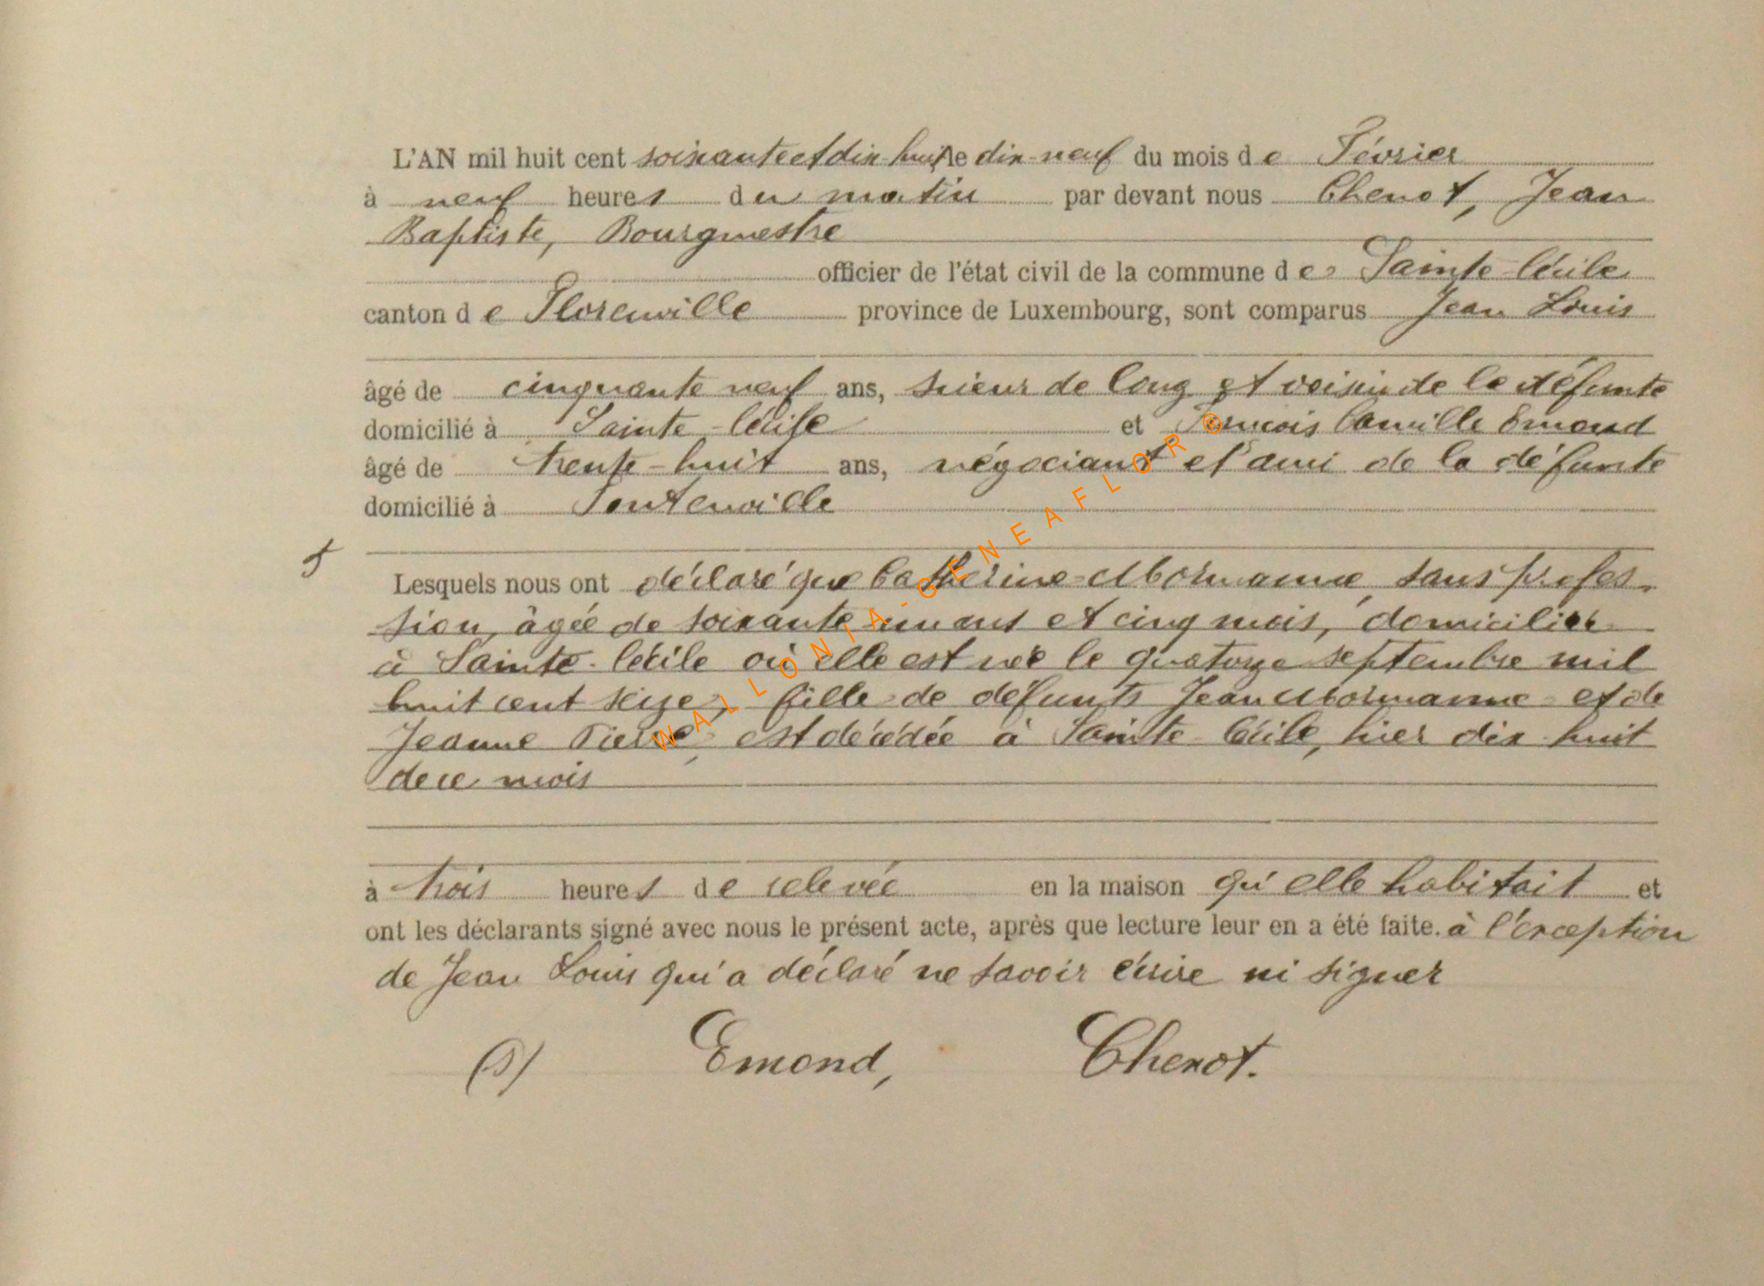 L'AN mil huit cent soixante et dix huit le dix-neuf du mois de Février
à neuf heures du matin par devant nous Chenot, Jean
Baptiste, Bourgmestre
officier de l'état civil de la commune de Sainte-Cécile
canton de Florenville province de Luxembourg, sont comparus Jean Louis
âgé de cinquante neuf ans, scieur de long et voisin de la défunte
domicilié à Sainte-Cécile et François Camille Emond
âgé de trente-huit ans, négociant et ami de la défunte
domicilié à Fontenoille
Lesquels nous ont déclaré que Catherine Mormanne, sans profes-
sion, âgée de soixante un ans et cinq mois, domiciliée
à Sainte-Cécile où elle est née le quatorze septembre mil
huit cent seize, fille de défunts Jean Mormanne et de
Jeanne Pierre, est décédée à Sainte-Cécile, hier dix huit
de ce mois
à trois heures de relevée en la maison qu'elle habitait et
ont les déclarants signé avec nous le présent acte, après que lecture leur en a été faite. à l'exception
de Jean Louis qui a déclaré ne savoir écrire ni signer
(s) Emond, Chenot.
WALLONIA-GENEAFLOR©